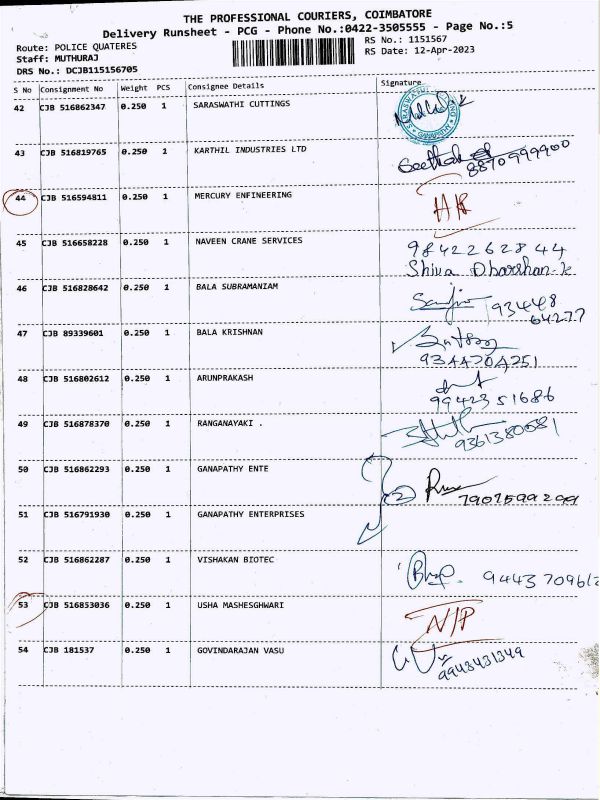 THE PROFESSIONAL COURIERS, COIMBATORE
Delivery Runsheet - PCG - Phone No.:0422-3505555 - Page No.:5
Route: POLICE QUATERES RS No.: 1151567
Staff: MUTHURAJ RS Date: 12-Apr-2023
DRS No.: DCJB115156705
S No Consignment No Weight PCS Consignee Details Signature
42 CJB 516862347 0.250 1 SARASWATHI CUTTINGS
43 CJB 516819765 0.250 1 KARTHIL INDUSTRIES LTD
8870999900
44 CJB 516594811 0.250 1 MERCURY ENFINEERING
45 CJB 516658228 0.250 1 NAVEEN CRANE SERVICES 9842262844
Shiva Dharshan.k
46 CJB 516828642 0.250 1 BALA SUBRAMANIAM
93448
64277
47 CJB 89339601 0.250 1 BALA KRISHNAN
9344704251
48 CJB 516802612 0.250 1 ARUNPRAKASH
9942351686
49 CJB 516878370 0.250 1 RANGANAYAKI .
9361380681
50 CJB 516862293 0.250 1 GANAPATHY ENTE
2
7907599299
51 CJB 516791930 0.250 1 GANAPATHY ENTERPRISES
52 CJB 516862287 0.250 1 VISHAKAN BIOTEC
53 CJB 516853036 0.250 1 USHA MASHESGHWARI N/P
54 CJB 181537 0.250 1 GOVINDARAJAN VASU
9943431349